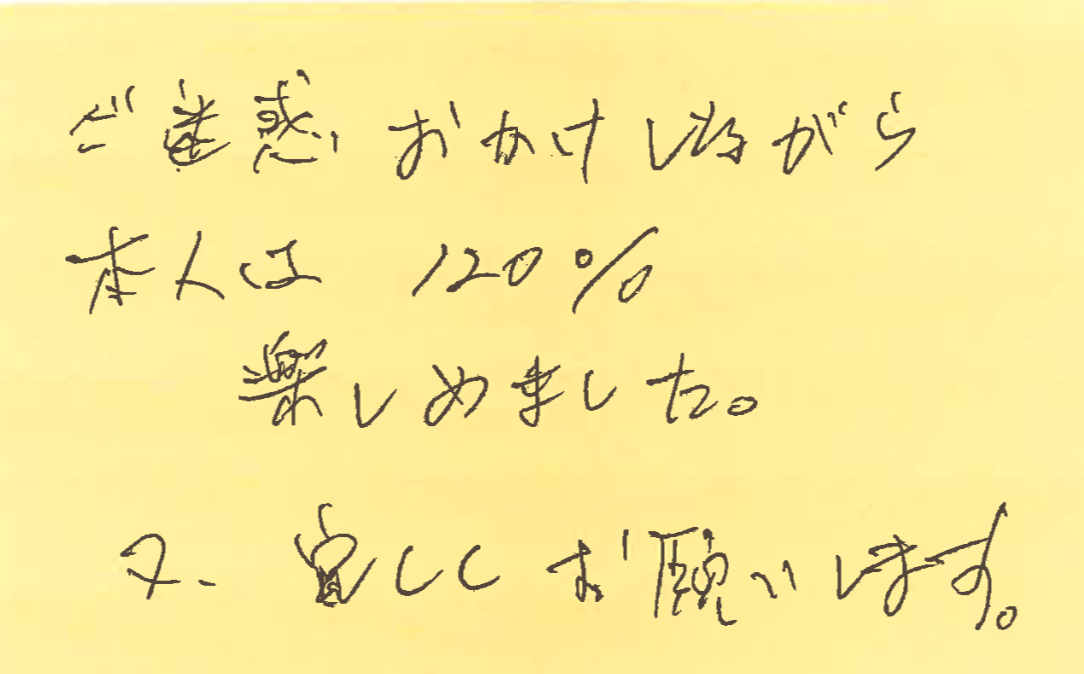 ご迷惑おかけしながら
本人は 120%
楽しめました。
又、宜しくお願いします。